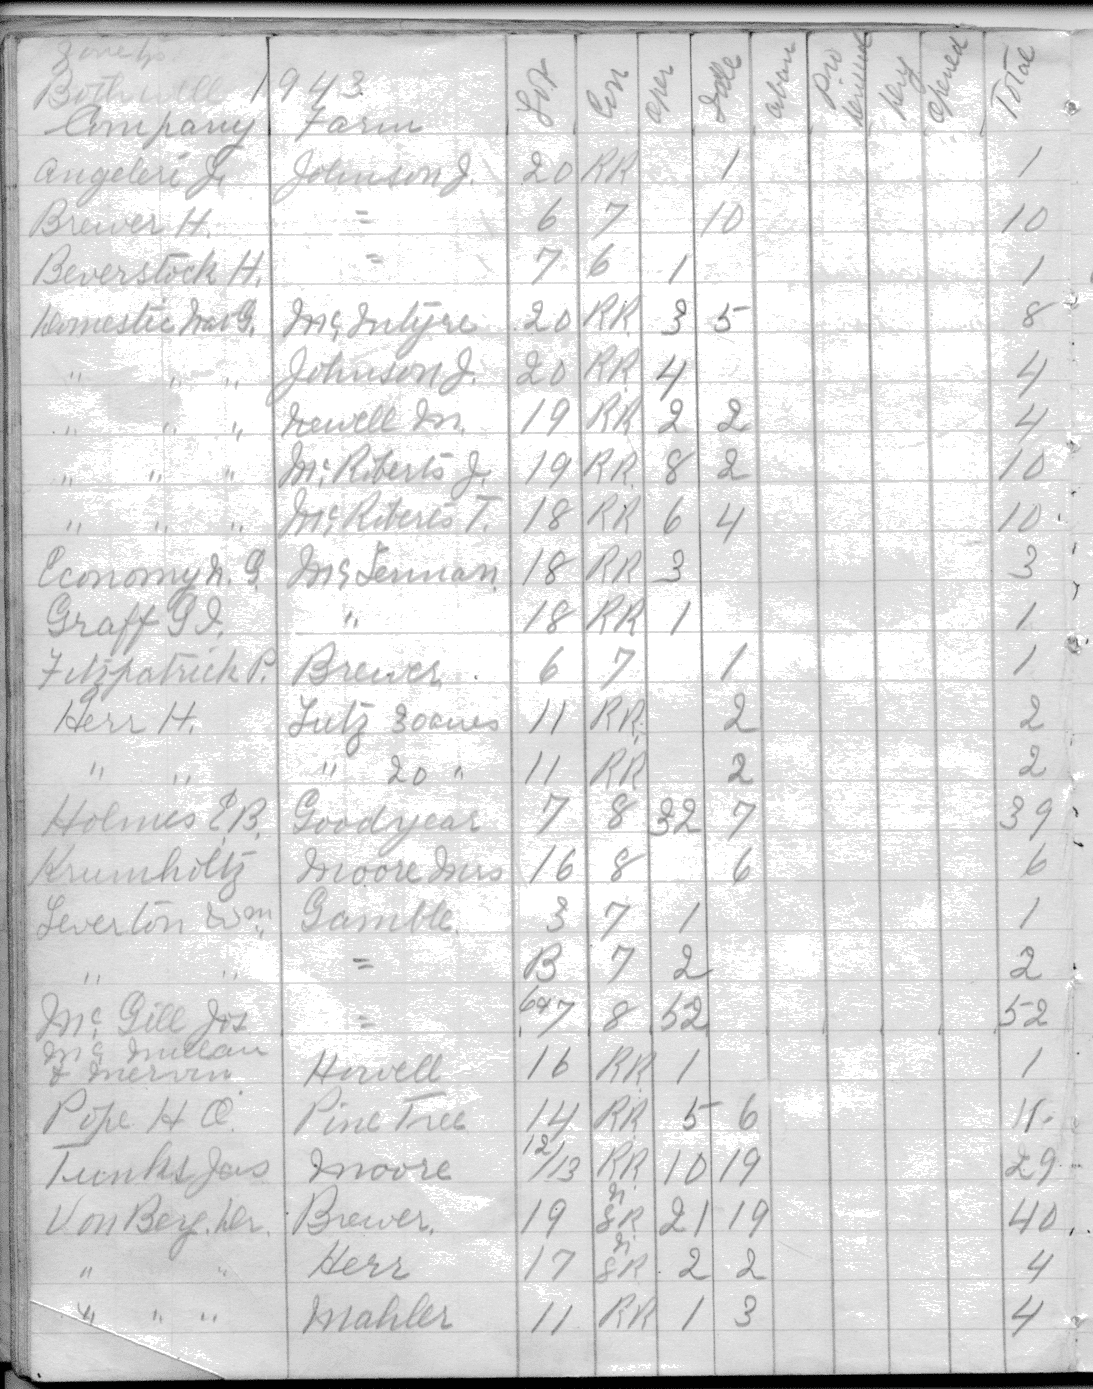 Zone Tp.
Bothwell 1943
Company Farm Lot Con oper Idle aban Pro duced
Angeleri J. Johnson J. 20 RR 1 1
Brewer H. = 6 7 10 10
Beverstock H. = 7 6 1 1
Domestic Nat G. Mc Intyre 20 RR 3 5 8
" " " Johnson J. 20 RR 4 4
" " " Newell M. 19 RR 2 2 4
" " " Mc Roberts J. 19 RR 8 2 10
" " " Mc Roberts T. 18 RR 6 4 10
Economy N. G. Mc Lennan 18 RR 3 3
Graff G I. " 18 RR 1 1
Fitzpatrick P. Brewer 6 7 1 1
Herr H. Lutz 30 acres 11 RR 2 2
" " " 20 " 11 RR 2 2
Holmes E B. Goodyear 7 8 32 7 39
Krumholtz Moore Mrs 16 8 6 6
Leverton Wm. Gamble. 3 7 1 1
" " = B 7 2 2
Mc Gill Jos = 6&7 8 52 52
& Mervin Howell 16 RR 1 1
Pope H O. Pine Tree 14 RR 5 6 11
Trunks Jas Moore 12/13 RR 10 19 29
Von Berg. Dr. Brewer. 19 RR 21 19 40
" " Herr 17 RR 2 2 4
" " " Mahler 11 RR 1 3 4